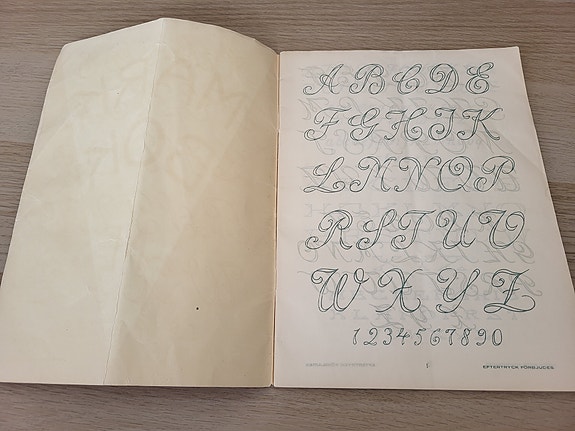 A B C D E
F G H I K
L M N O P
R S T U V
W X Y Z
1 2 3 4 5 6 7 8 9 0
5 EFTERTRYCK FÖRBJUDES